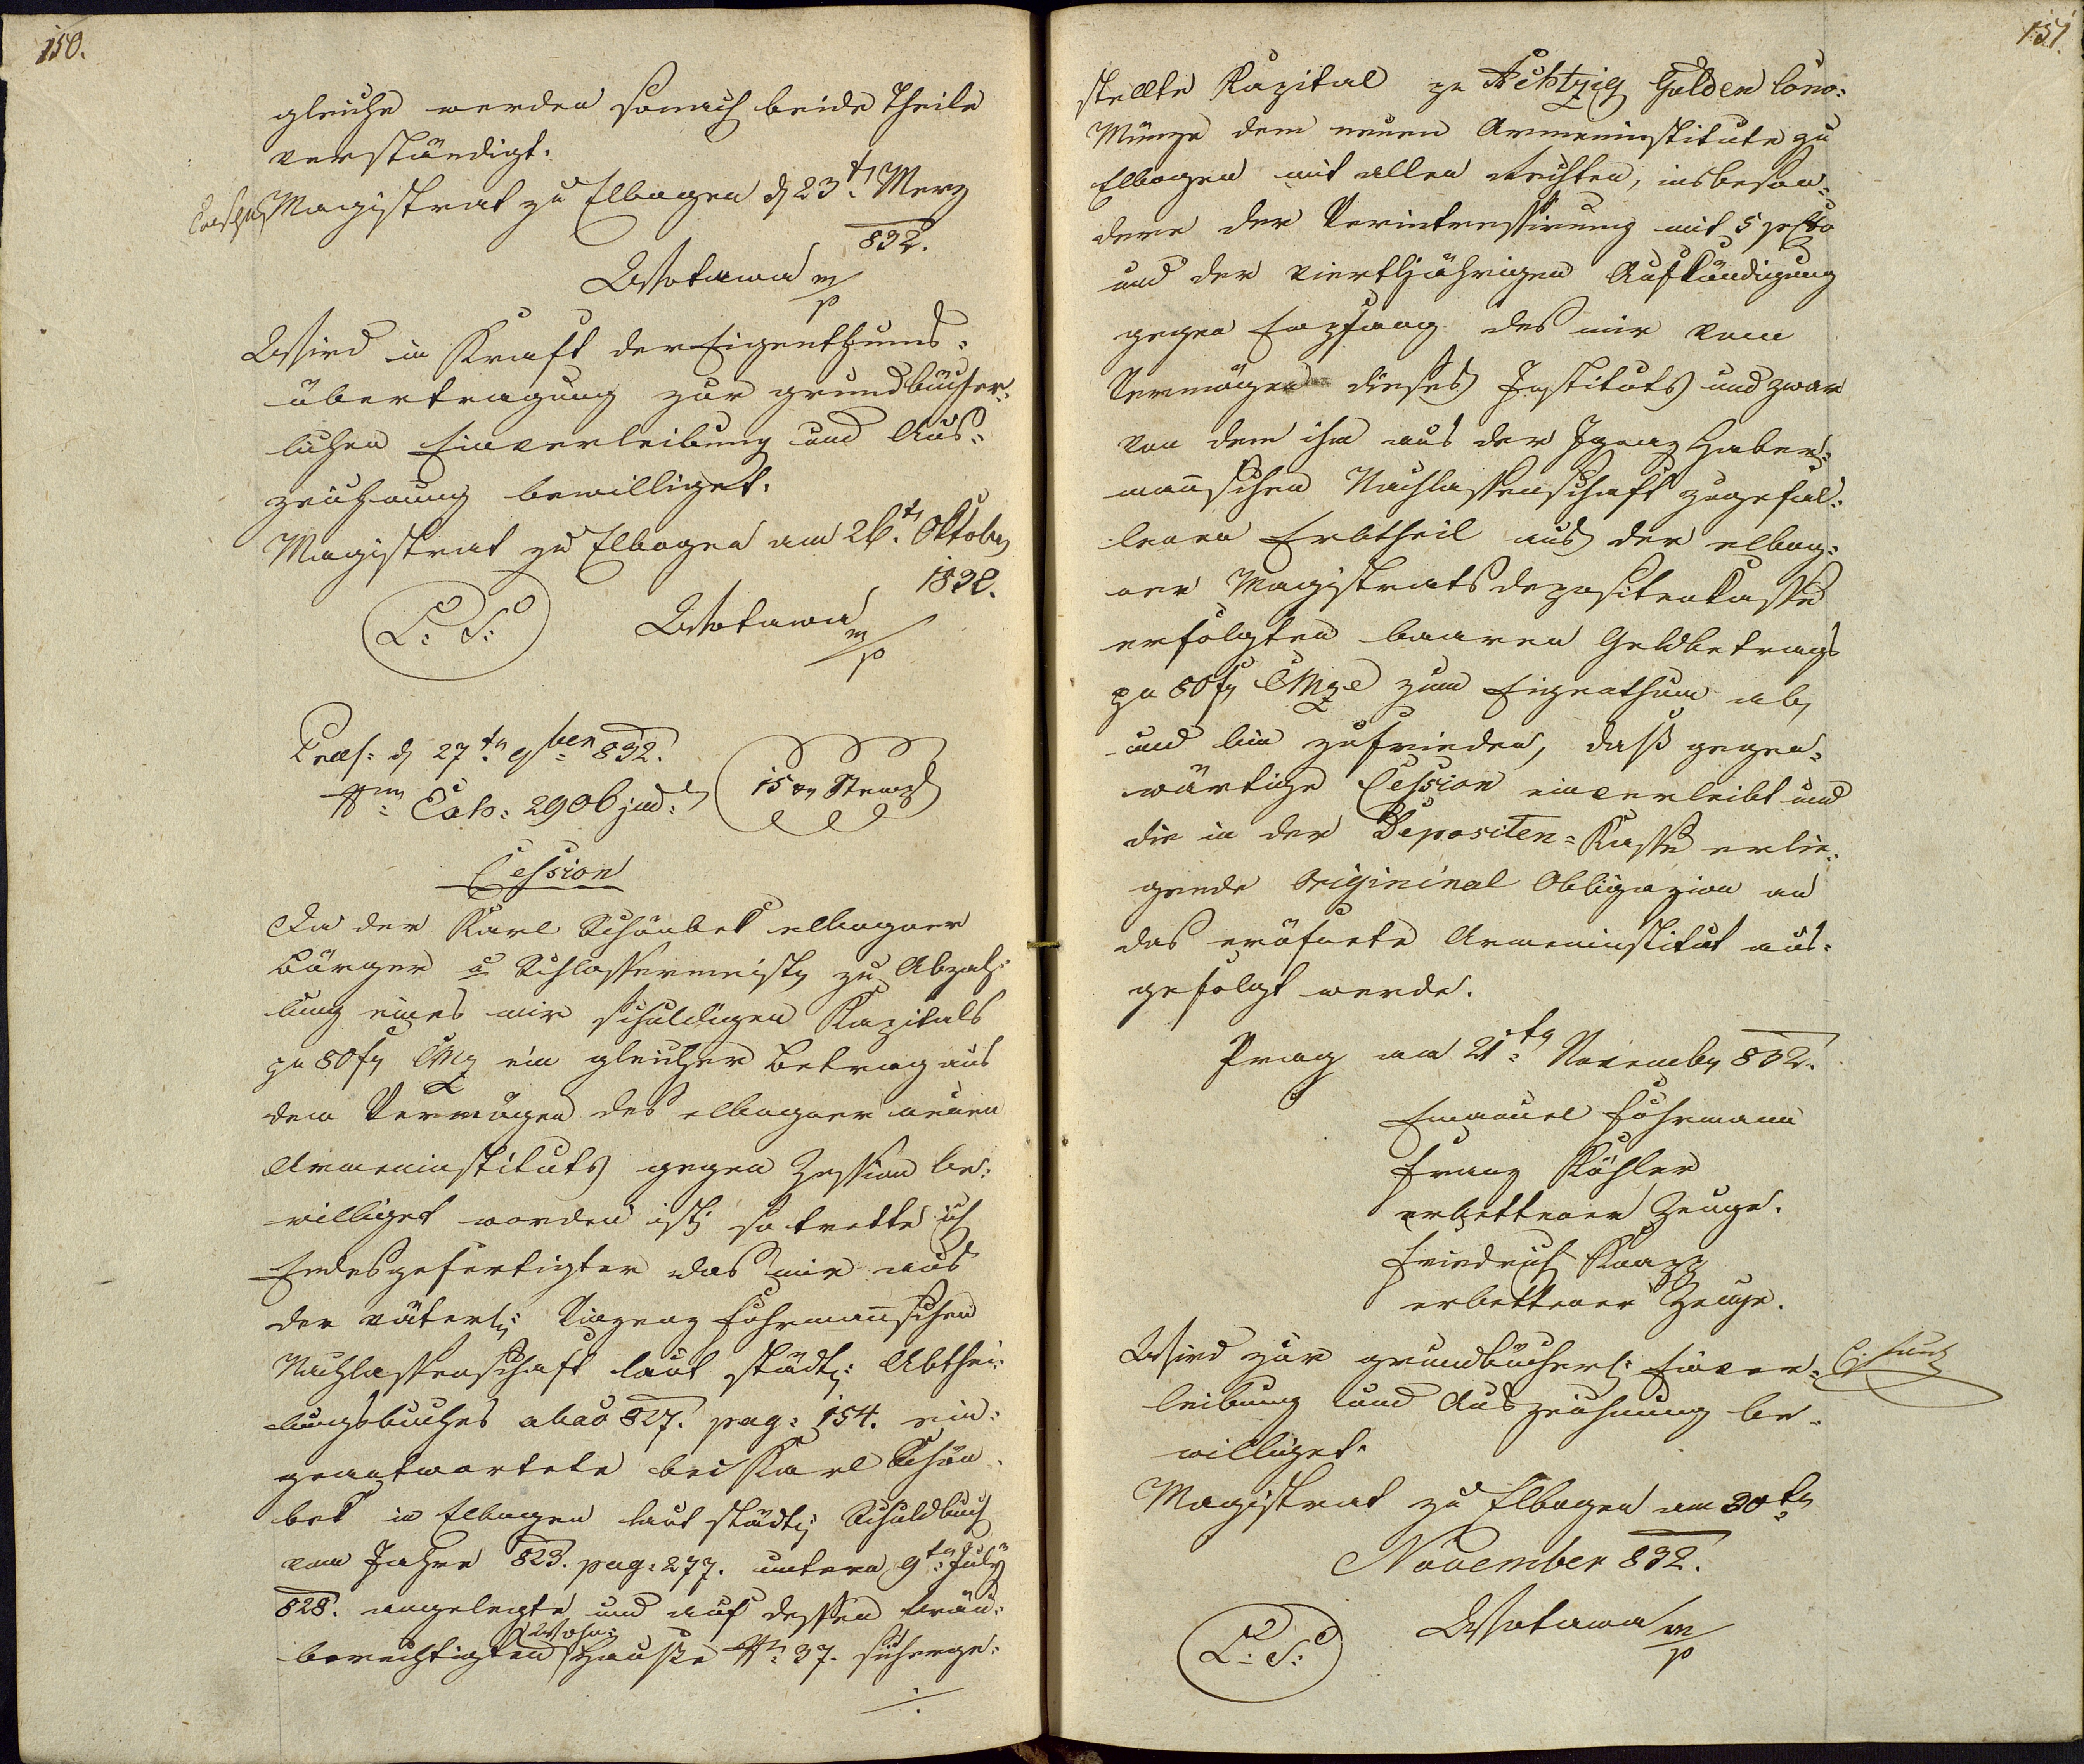 150.
gleiche werden sonach beide Theile
verständigt.
Magistrat zu Elbogen d 23t. Merz
832.
Wottawa m/p
Wird in Kraft der Eigenthums-
übertragung zur grundbücher-
lichen Einverleibung und Aus-
zeichnung bewilliget.
Magistrat zu Elbogen am 26t. Oktober
1832.
L: S: Wottawa m/p
Praes: d 27tn 9ber 832.
Exh: 2906 jud: 15 xr Stempl
Cession
Da der Karl Schönbek elbogner
Bürger u Schlossermeister zu Abzah-
lung eines mir schuldigen Kapitals
pr 80 fr CMz ein gleicher Betrag aus
dem Vermögen des elbogner neuen
Armeninstituts gegen Zession be-
williget worden ist; so trette ich
Endesgefertigter das mir aus
der väterl: Vinzenz Fuhrmannschen
Nachlassenschaft laut städt: Abthei-
lungsbuches ab ao 827. pag: 154. ein-
geantwortete bei Karl Schön-
bek in Elbogen laut städt: Schuldbuch
vom Jahre 823. pag: 277. untern 9tn July
828. angelegte und auf dessen bräu-
berechtigten Wohn- Hause N: 37. sicherge-
151.
stellte Kapital pr Achtzig Gulden Conv:
Münze dem neuen Armeninstitute zu
Elbogen mit allen Rechten, insbeson-
dere der Verintressirung mit 5 prcto
und der viertljährigen Aufkündigung
gegen Empfang des mir vom
Vermögen dieses Instituts und zwar
von dem ihm aus der Ignaz Haber-
mannschen Nachlassenschaft zugefal-
lenen Erbtheil aus der elbog-
ner Magistratsdepositenkasse
erfolgten baaren Geldbetrags
pr 80 fr CMze zum Eigenthum ab,
und bin zufrieden, daß gegen-
wärtige Cession einverleibt und
die in der Depositen-Kasse erlie-
gende Origininal Obligazion an
das eröfnete Armeninstitut aus-
gefolgt werde.
Prag am 21tn November 832.
Emanuel Fuhrmann
Franz Köhler
erbettener Zeuge.
Friedrich Knapp
erbettener Zeuge.
Wird zur grundbücherl: Einver-
leibung und Auszeichnung be-
williget.
Magistrat zu Elbogen am 30tn
November 832.
L: S: Wottawa m/p